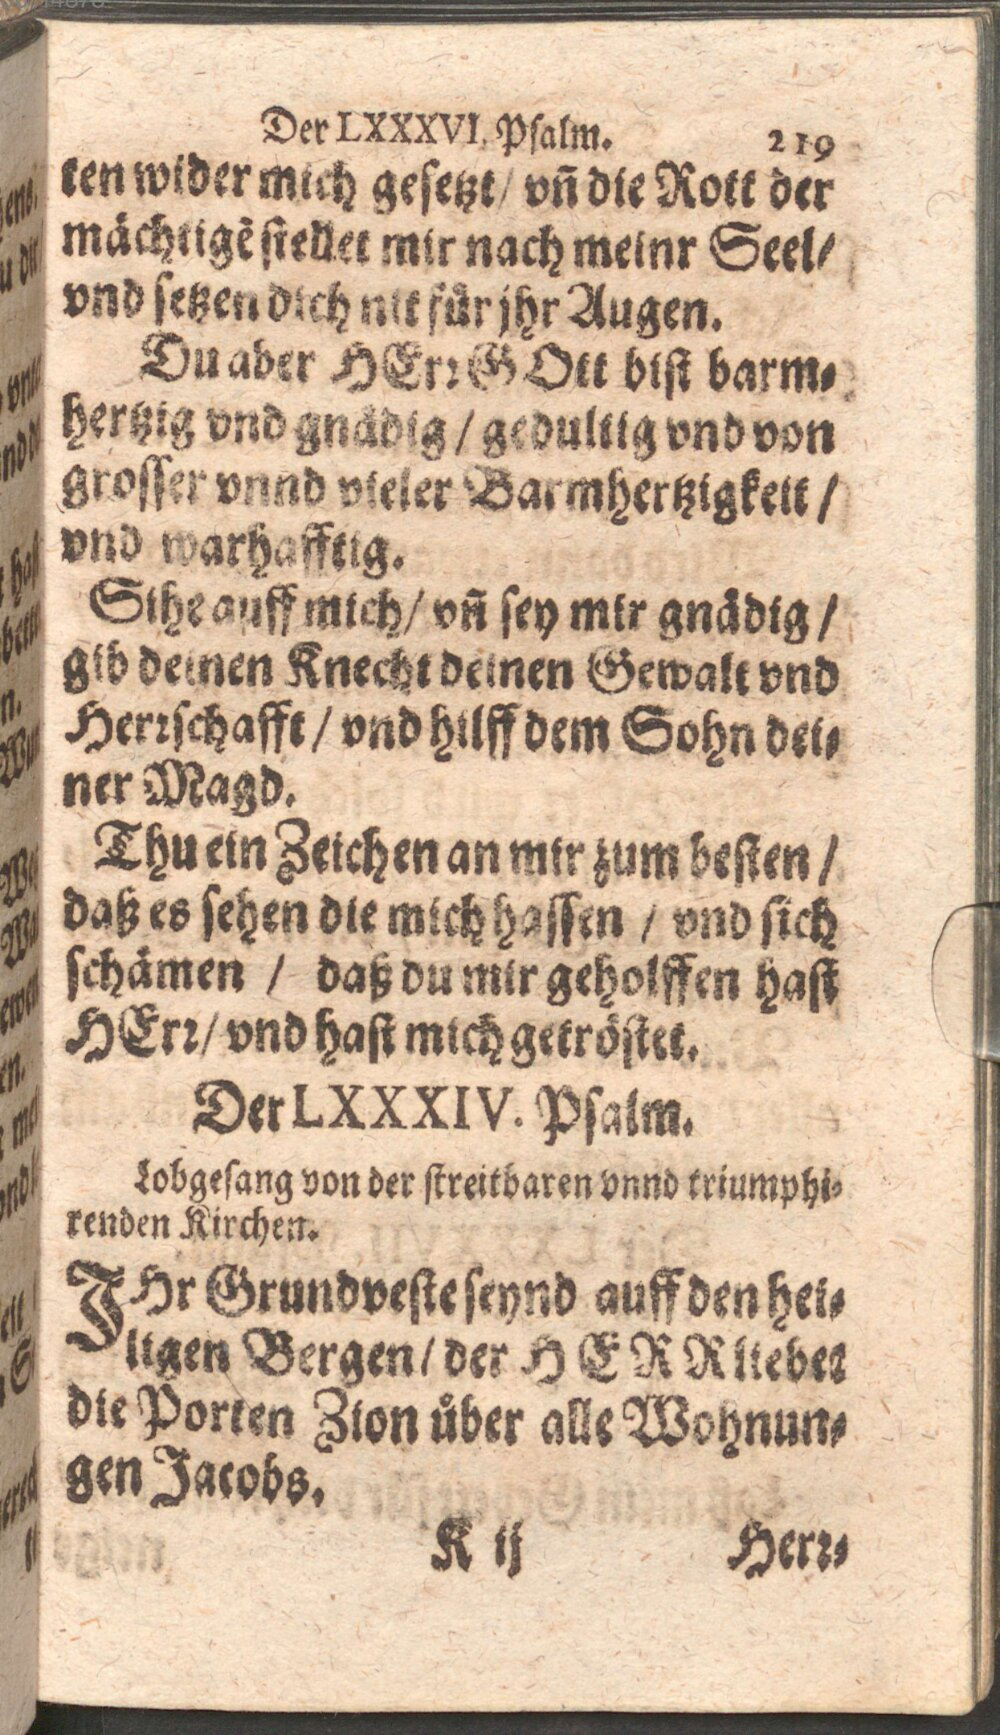 Der LXXXVI. Psalm. 219
ten wider mich gesetzt / vñ die Rott der
mächtigẽ stellet mir nach meinr Seel /
vnd setzen dich nit fůr jhr Augen.
Du aber HErꝛ GOtt bist barm⸗
hertzig vnd gnädig / gedultig vnd von
grosser vnnd vieler Barmhertzigkeit /
vnd warhafftig.
Sihe auff mich / vñ sey mir gnädig /
gib deinen Knecht deinen Gewalt vnd
Herꝛschafft / vnd hilff dem Sohn dei⸗
ner Magd.
Thu ein Zeichen an mir zum besten /
daß es sehen die mich hassen / vnd sich
schämen / daß du mir geholffen hast
HErꝛ / vnd hast mich getröstet.
Der LXXXIV. Psalm.
Lobgesang von der streitbaren vnnd triumphi⸗
renden Kirchen.
IHr Grundveste seynd auff den hei⸗
ligen Bergen / der HERR liebet
die Porten Zion ůber alle Wohnun⸗
gen Jacobs.
K ij Herꝛ⸗